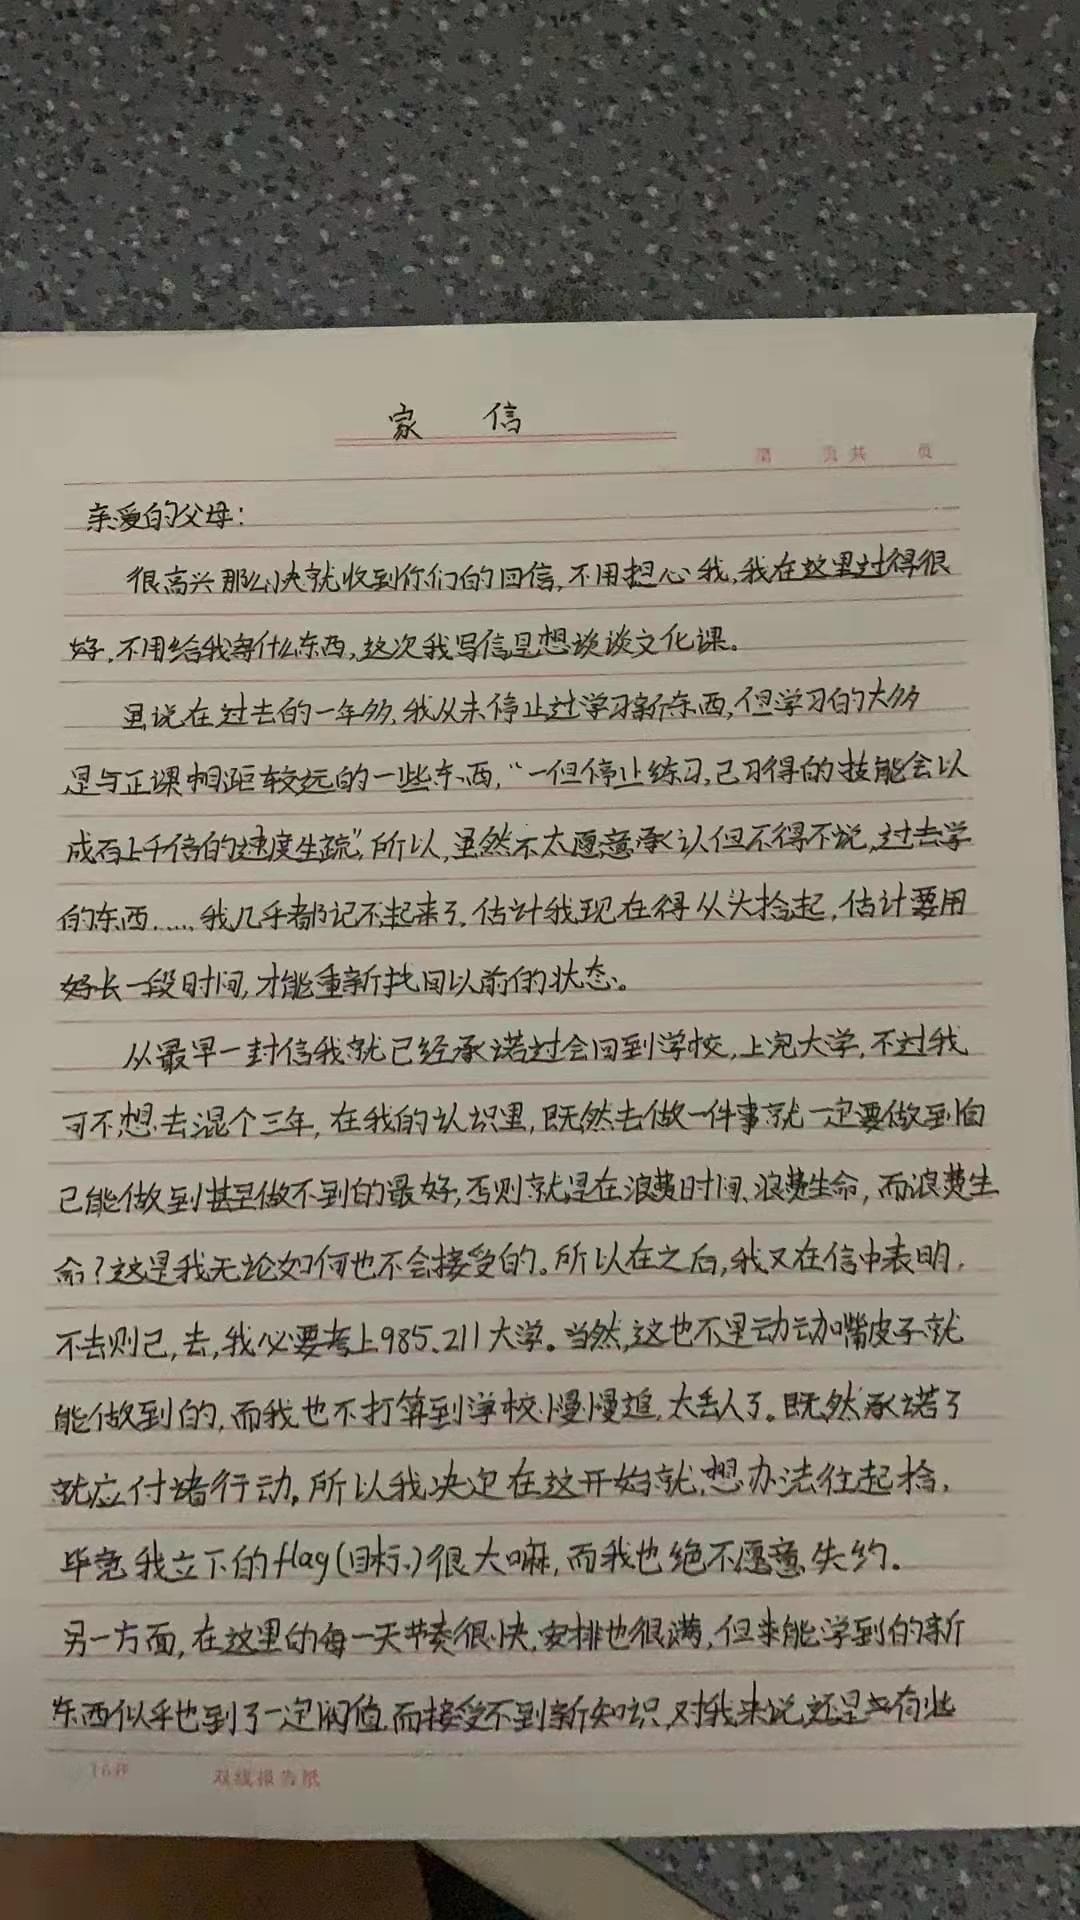 家 信
第 页 共 页
亲爱的父母：
很高兴那么快就收到你们的回信，不用担心我，我在这里过得很
好，不用给我寄什么东西，这次我写信是想谈谈文化课。
虽说在过去的一年多，我从未停止过学习新东西，但学习的大多
是与正课相距较远的一些东西，“一但停止练习，已习得的技能会以
成百上千倍的速度生疏”，所以，虽然不太愿意承认但不得不说，过去学
的东西……我几乎都记不起来了，估计我现在得从头拾起，估计要用
好长一段时间，才能重新找回以前的状态。
从最早一封信我就已经承诺过会回到学校，上完大学，不过我
可不想去混个三年，在我的认识里，既然去做一件事就一定要做到自
己能做到甚至做不到的最好，否则就是在浪费时间、浪费生命，而浪费生
命？这是我无论如何也不会接受的。所以在之后，我又在信中表明，
不去则已，去，我必要考上985、211大学。当然，这也不是动动嘴皮子就
能做到的，而我也不打算到学校慢慢追，太丢人了。既然承诺了
就应付诸行动，所以我决定在这开始就想办法往起拾，
毕竟我立下的flag（目标）很大嘛，而我也绝不愿意失约。
另一方面，在这里的每一天节奏很快，安排也很满，但来能学到的新
东西似乎也到了一定阀值，而接受不到新知识，对我来说还是有些
16开 双线报告纸